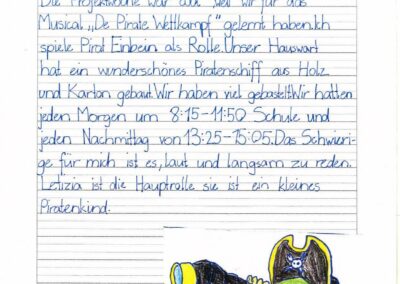 Die Projektwoche war cool weil wir für das
Musical „De Pirate Wettkampf" gelernt haben.Ich
spiele Pirat Einbein als Rolle.Unser Hauswart
hat ein wunderschönes Piratenschiff aus Holz
und Karton gebaut.Wir haben viel gebastelt.Wir hatten
jeden Morgen um 8:15-11:50 Schule und
jeden Nachmittag von 13:25-15:05.Das Schwieri-
ge für mich ist es, laut und langsam zu reden.
Letizia ist die Hauptrolle sie ist ein kleines
Piratenkind.